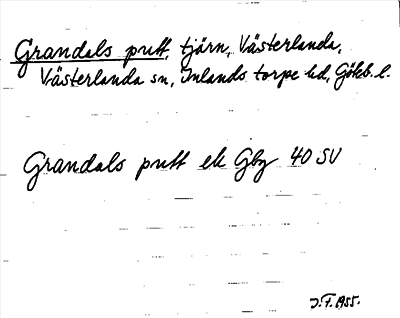 Grandals putt, tjärn, Västerlanda,
Västerlanda sn, Inlands torpe hd, Göteb. l.
Grandals putt ek Gbg 40 SV
J.F. 1955.